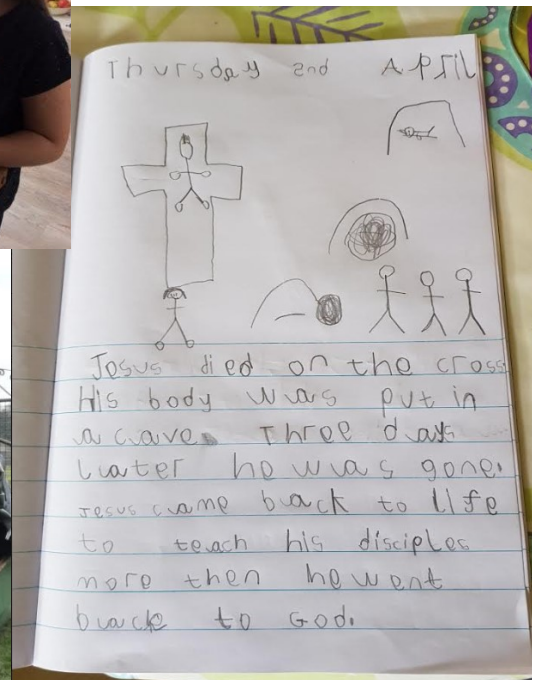 Thursday 2nd April
Jesus died on the cross
His body was put in
a cave. Three days
later he was gone.
Jesus came back to life
to teach his disciples
more then he went
back to God.